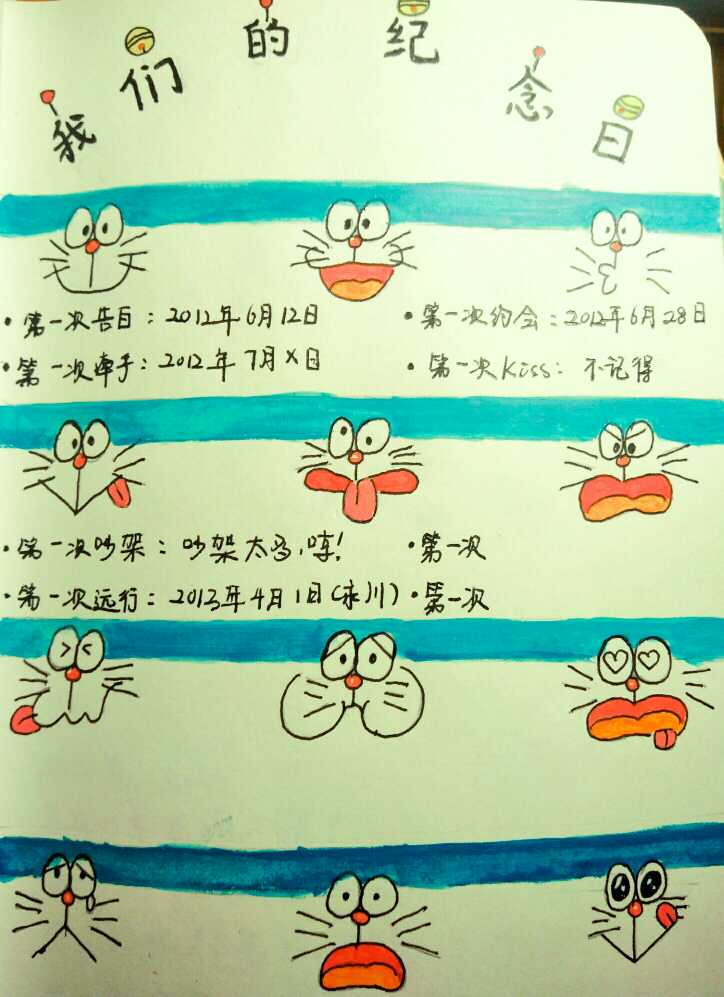 我们的纪念日
·第一次告白：2012年6月12日 ·第一次约会：2012年6月28日
·第一次牵手：2012年7月X日 ·第一次Kiss：不记得
·第一次吵架：吵架太多，哼！ ·第一次
·第一次远行：2013年4月1日（永川） ·第一次